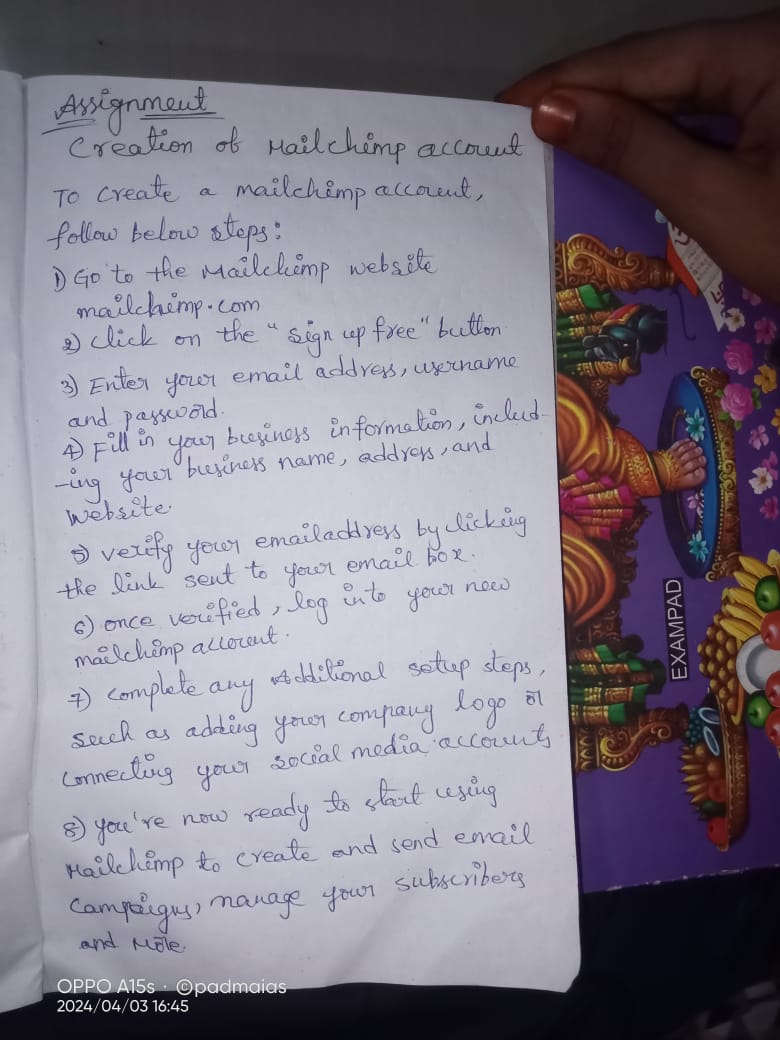 Assignment
Creation of Mailchimp account
To create a mailchimp account,
follow below steps:
1) Go to the Mailchimp website
mailchimp.com
2) click on the "sign up free" button
3) Enter your email address, username
and password.
4) Fill in your business information, includ-
-ing your business name, address, and
website.
5) verify your emailaddress by clicking
the link sent to your email box.
6) once verified, log into your new
mailchimp account.
7) complete any Additional setup steps,
such as adding your company logo or
connecting your social media accounts
8) you're now ready to start using
Mailchimp to create and send email
campaigns, manage your subscribers
and More.
EXAMPAD
OPPO A15s · ©padmaias
2024/04/03 16:45